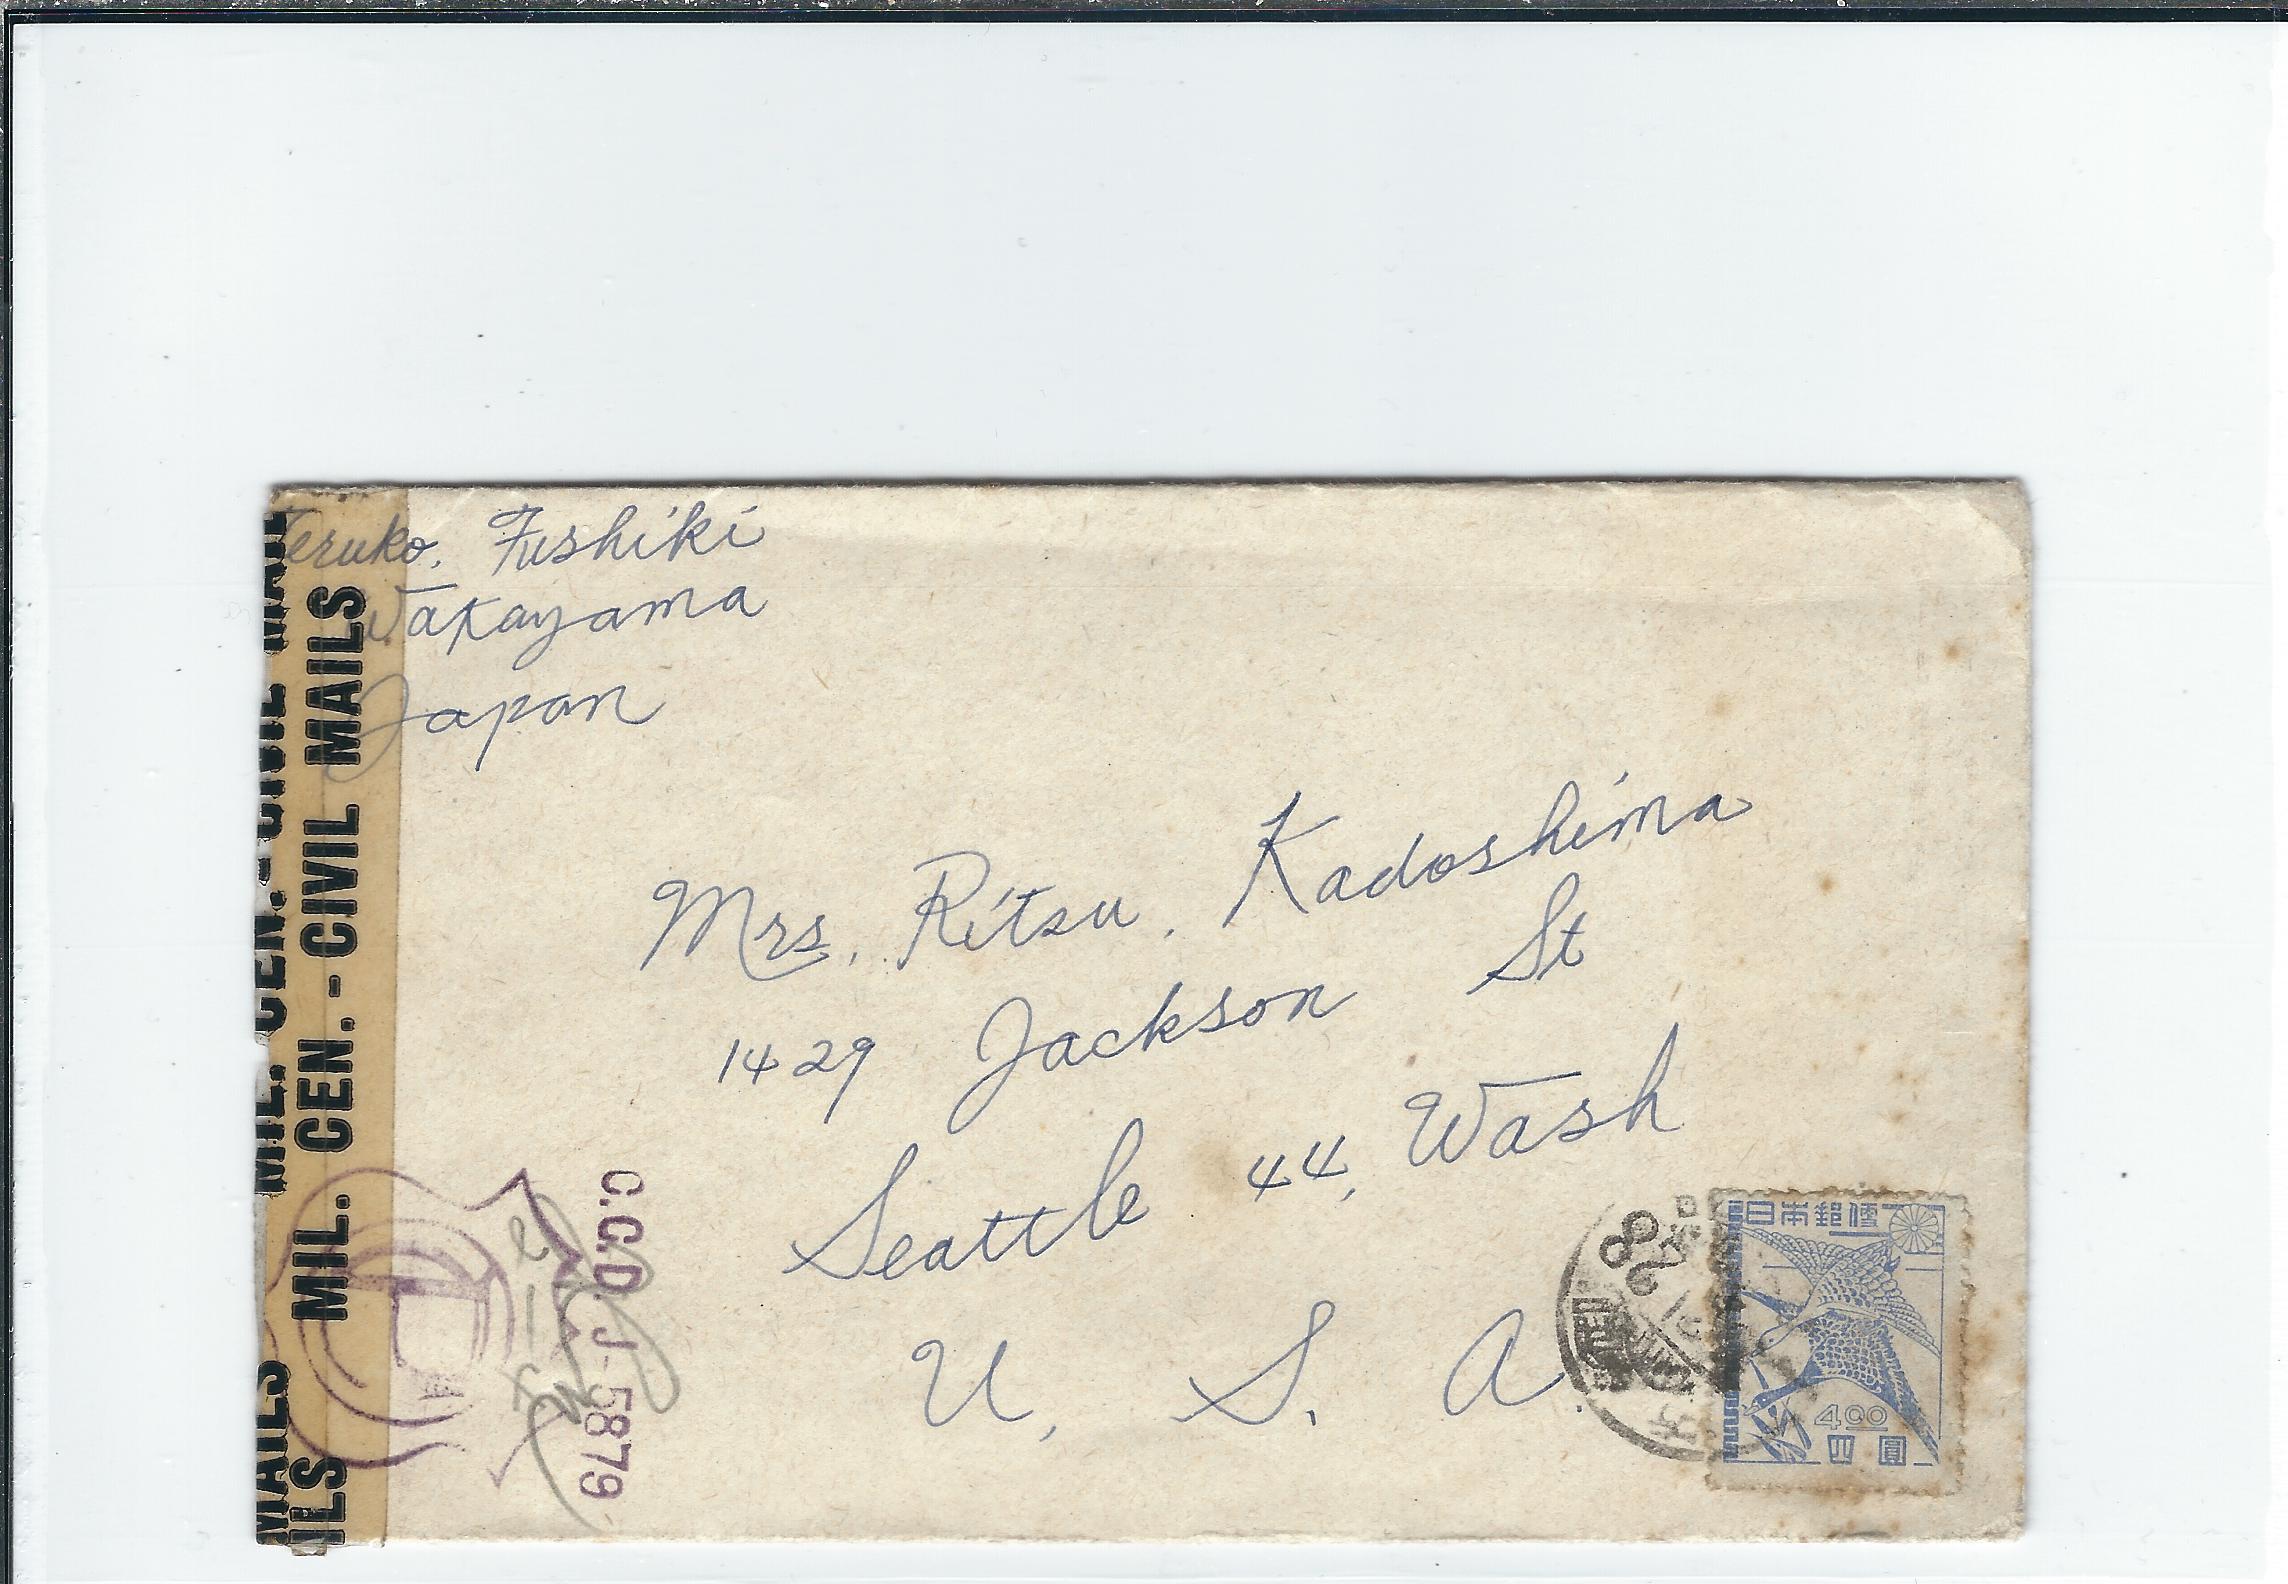 Teruko. Fushiki
Wakayama
Japan
Mrs. Ritsu. Kadoshima
1429 Jackson St
Seattle 44, Wash
U. S. A.
MIL. CEN.-CIVIL MAILS
MIL. CEN.-CIVIL MAILS
MAILS
ILS
C.C.D. J-5879
日本郵便
4.00
四圓